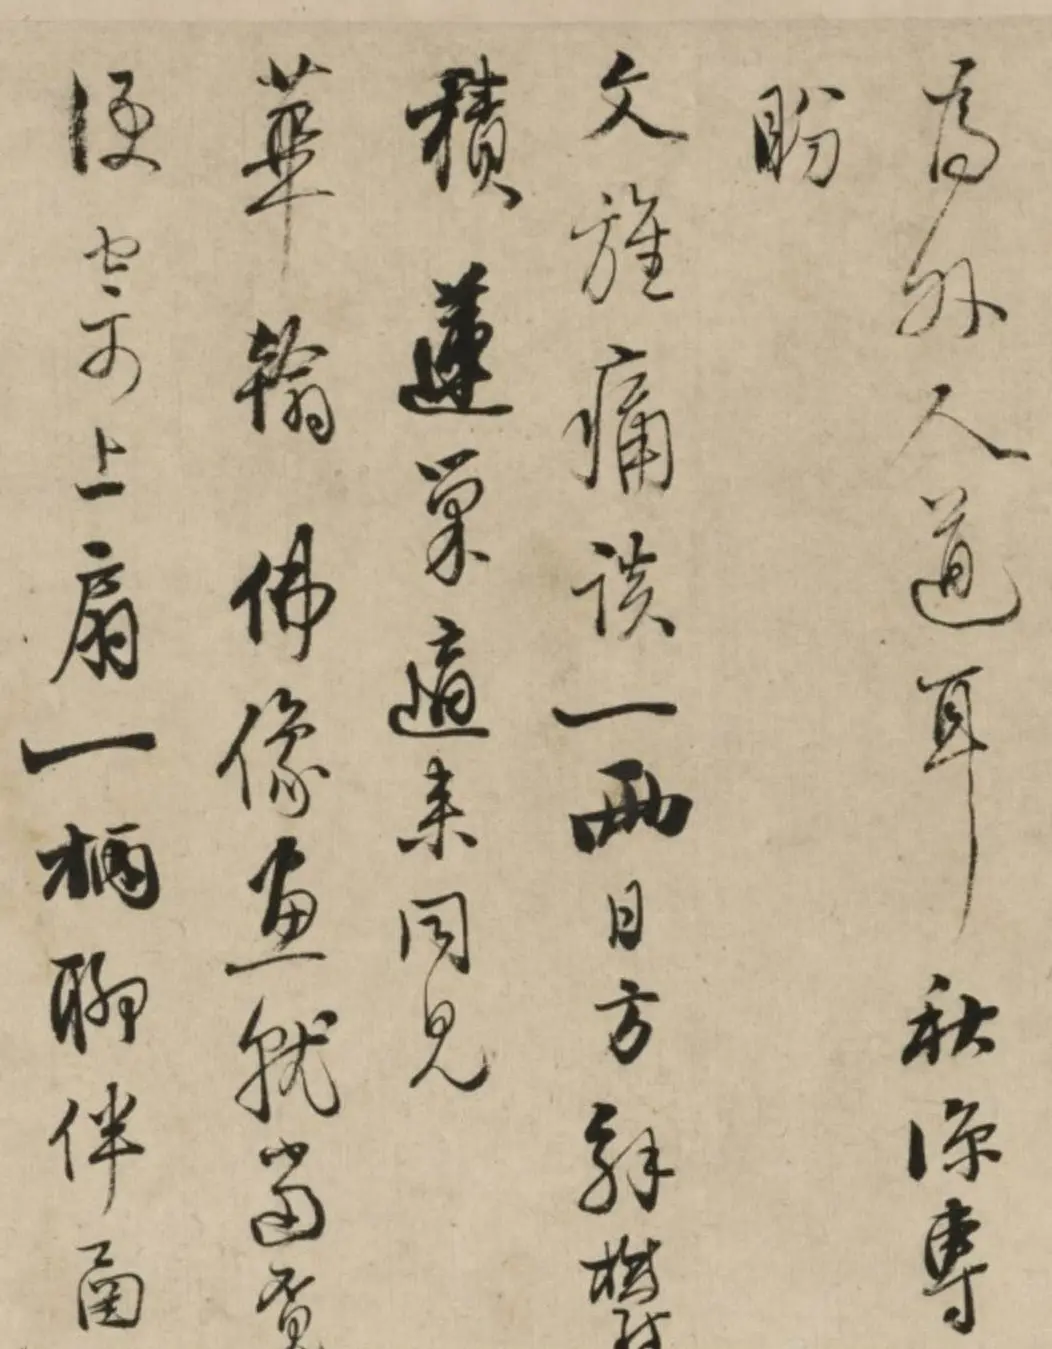 為外人道耳秋涼專
盼
文旌痛談一兩日方解
積蓮巢適來同見
華翰佛像畫就當覓
便寄上扇一柄聊伴